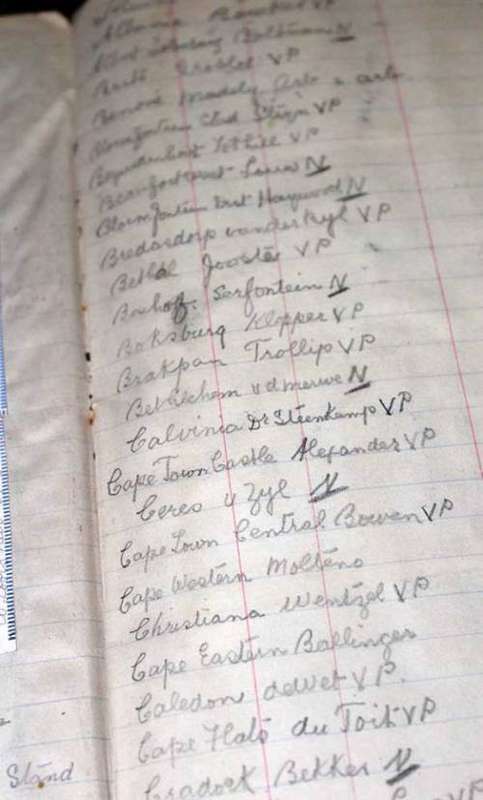 Albert Boltman N
VP
Benoni Madely Arb & arb
Bloemfontein Club Steyn VP
Bezuidenhout Tothill VP
Beaufort West Louw N
Bloemfontein Dist Haywood N
Bredasdorp vanderByl VP
Bethal Jooste VP
Boshof Serfontein N
Boksburg Klopper VP
Brakpan Trollip VP
Bethlehem v d merwe N
Calvinia Dr Steenkamp VP
Cape Town Castle Alexander VP
Ceres v Zyl N
Cape Town Central Bowen VP
Cape Western Molteno
Christiana Wentzel VP
Cape Eastern Ballinger
Caledon deWet VP.
Cape Flats du Toit VP
Cradock Bekker N
Stand